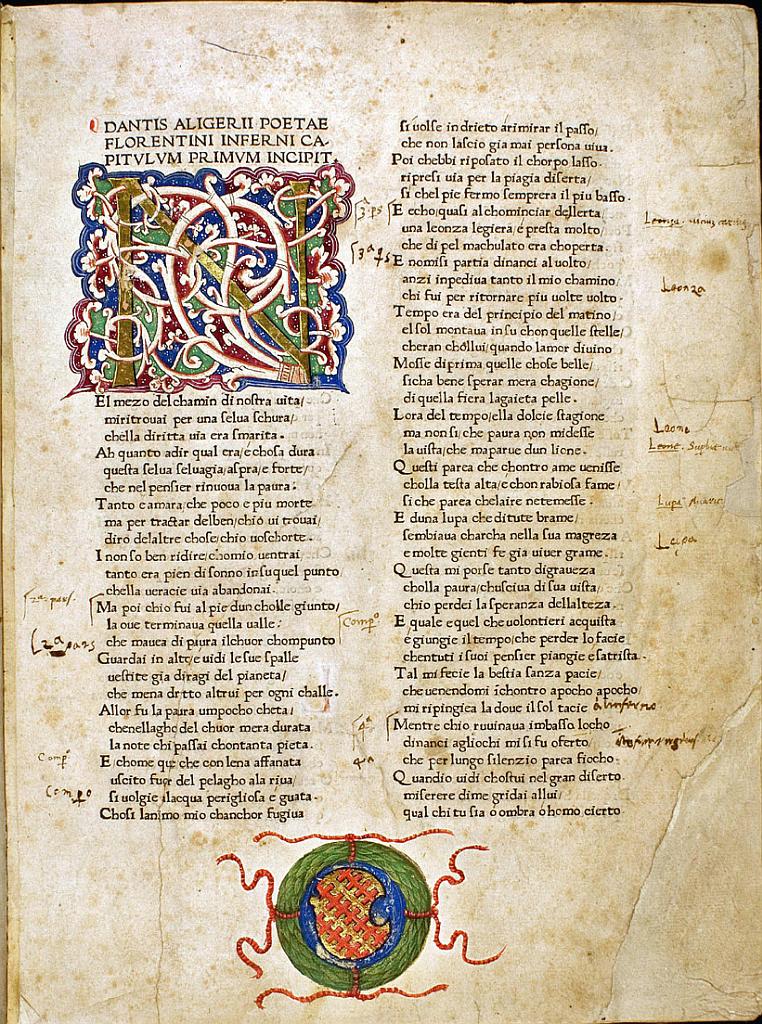 DANTIS ALIGERII POETAE
FLORENTINI INFERNI CA-
PITVLVM PRIMVM INCIPIT.
N
El mezo del chamin di nostra uita/
miritrouai per una selua schura/
chella diritta uia era smarita.
Ah quanto adir qual era/e chosa dura
questa selua seluagia/aspra/e forte/
che nel pensier rinuoua la paura:
Tanto e amara/che poco e piu morte
ma per tractar delben/chio ui trouai/
diro delaltre chose/chio uoschorte.
I non so ben ridire/chomio uentrai/
tanto era pien di sonno insuquel punto
chella ueracie uia abandonai.
2a pars.
Ma poi chio fui al pie dun cholle giunto/
la oue terminaua quella ualle:
2a pars
che mauea di paura ilchuor chompunto
Guardai in alto/e uidi le sue spalle
uestite gia diragi del pianeta/
che mena dritto altrui per ogni challe.
Allor fu la paura umpocho cheta/
chenellagho del chuor mera durata
la note chi passai chontanta pieta.
E/chome que che con lena affanata
uscito fuor del pelagho ala riua/
si uolgie ilacqua perigliosa e guata.
Compo
Chosi lanimo mio chanchor fugiua
si uolse indrieto arimirar il passo/
che non lascio gia mai persona uiua.
Poi chebbi riposato il chorpo lasso
ripresi uia per la piagia diserta/
si chel pie fermo semprera il piu basso.
E echo/quasi al chominciar dellerta
una leonza legiera/e presta molto/
che di pel machulato era choperta.
3a ps
E nomisi partia dinanci al uolto/
anzi inpediua tanto il mio chamino/
Leonza
chi fui per ritornare piu uolte uolto.
Tempo era del principio del matino/
el sol montaua insu chon quelle stelle/
cheran chollui/quando lamor diuino
Mosse diprima quelle chose belle/
sicha bene sperar mera chagione/
di quella fiera lagaieta pelle.
Lora del tempo/ella dolcie stagione
ma non si/che paura non midesse
Leone
la uista/che maparue dun lione.
Leone.
Questi parea che chontro ame uenisse
cholla testa alta/e chon rabiosa fame/
si che parea chelaire netemesse.
E duna lupa che ditute brame/
Lupa
sembiaua charcha nella sua magreza
e molte gienti fe gia uiuer grame.
Lupa
Questa mi porse tanto digraueza
cholla paura/chusciua di sua uista/
chio perdei la speranza dellalteza.
E quale equel che uolontieri acquista
Compo
e giungie il tempo/che perder lo facie
chentuti i suoi pensier piangie esatrista.
Tal mi fecie la bestia sanza pacie/
che uenendomi ichontro apocho apocho/
mi ripingica la doue il sol tacie
Mentre chio ruuinaua imbasso locho
4a
dinanci agliochi mi si fu oferto/
che per lungo silenzio parea fiocho.
4a
Quandio uidi chostui nel gran diserto.
miserere dime gridai allui/
qual chi tu sia o ombra o homo cierto